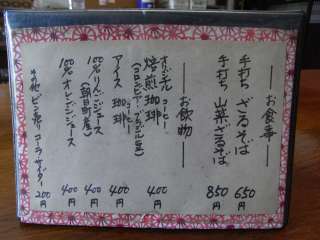 お食事
手打ち ざるそば 650円
手打ち 山菜ざるそば 850円
お飲物
オリジナルコーヒー
焙煎珈琲 400円
(コロンビア・ブラジル豆)
アイス珈琲 400円
コーヒー
100%りんごジュース 400円
(朝日町産)
100%オレンジジュース 400円
その他 ビン売り コーラ・サイダー 200円